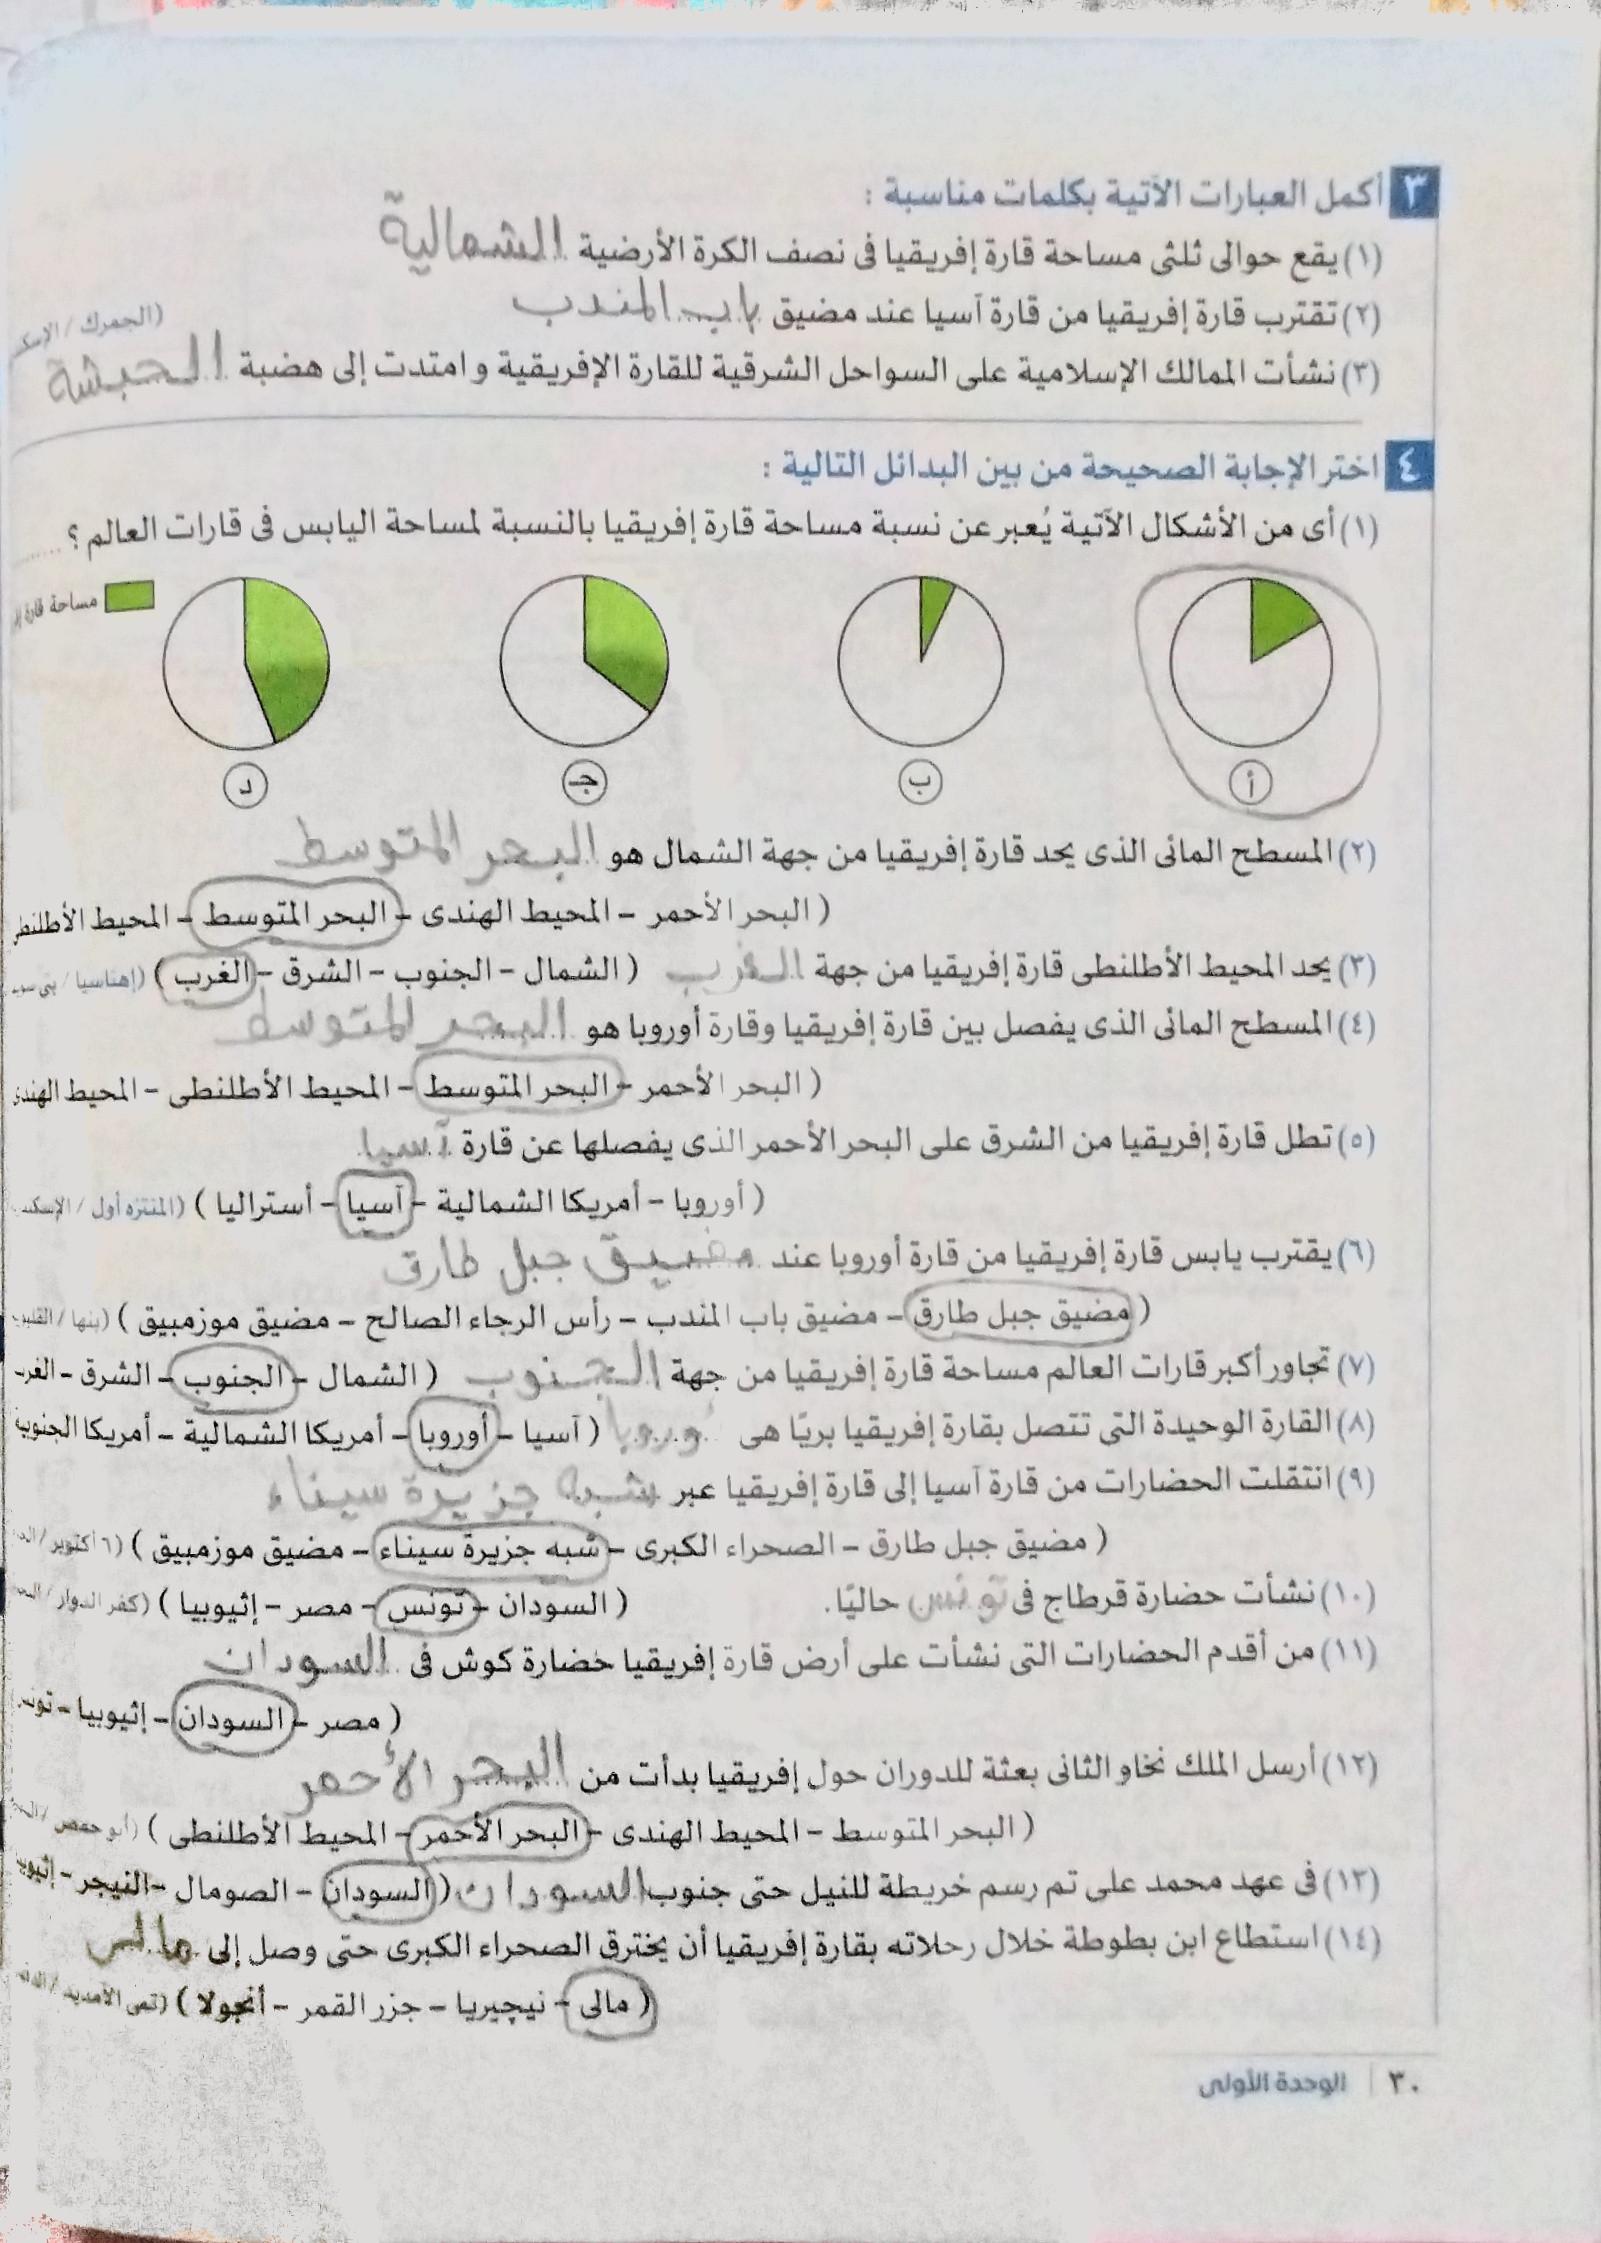 ٣ أكمل العبارات الآتية بكلمات مناسبة :
(١) يقع حوالى ثلثى مساحة قارة إفريقيا فى نصف الكرة الأرضية الشمالية
(٢) تقترب قارة إفريقيا من قارة آسيا عند مضيق باب المندب
(الجمرك / الإسك
(٣) نشأت الممالك الإسلامية على السواحل الشرقية للقارة الإفريقية وامتدت إلى هضبة الحبشة
٤ اختر الإجابة الصحيحة من بين البدائل التالية :
(١) أى من الأشكال الآتية يُعبر عن نسبة مساحة قارة إفريقيا بالنسبة لمساحة اليابس فى قارات العالم ؟ ......
مساحة قارة
أ ب جـ د
(٢) المسطح المائى الذى يحد قارة إفريقيا من جهة الشمال هو البحر المتوسط
( البحر الأحمر – المحيط الهندى – البحر المتوسط – المحيط الأطلنطى
(٣) يحد المحيط الأطلنطى قارة إفريقيا من جهة الغرب ( الشمال – الجنوب – الشرق – الغرب ) (إهناسيا / بنى سويف
(٤) المسطح المائى الذى يفصل بين قارة إفريقيا وقارة أوروبا هو البحر المتوسط
( البحر الأحمر – البحر المتوسط – المحيط الأطلنطى – المحيط الهندى
(٥) تطل قارة إفريقيا من الشرق على البحر الأحمر الذى يفصلها عن قارة آسيا
( أوروبا – أمريكا الشمالية – آسيا – أستراليا ) (المنتزه أول / الإسكند
(٦) يقترب يابس قارة إفريقيا من قارة أوروبا عند مضيق جبل طارق
( مضيق جبل طارق – مضيق باب المندب – رأس الرجاء الصالح – مضيق موزمبيق ) (بنها / القليوب
(٧) تجاور أكبر قارات العالم مساحة قارة إفريقيا من جهة الجنوب ( الشمال – الجنوب – الشرق – الغرب
(٨) القارة الوحيدة التى تتصل بقارة إفريقيا بريًا هى أوروبا ( آسيا – أوروبا – أمريكا الشمالية – أمريكا الجنوبية
(٩) انتقلت الحضارات من قارة آسيا إلى قارة إفريقيا عبر شبه جزيرة سيناء
( مضيق جبل طارق – الصحراء الكبرى – شبه جزيرة سيناء – مضيق موزمبيق ) (٦ أكتوبر /
(١٠) نشأت حضارة قرطاج فى تونس حاليًا. ( السودان – تونس – مصر – إثيوبيا ) (كفر الدوار /
(١١) من أقدم الحضارات التى نشأت على أرض قارة إفريقيا حضارة كوش فى السودان
( مصر – السودان – إثيوبيا – تونس
(١٢) أرسل الملك نخاو الثانى بعثة للدوران حول إفريقيا بدأت من البحر الأحمر
( البحر المتوسط – المحيط الهندى – البحر الأحمر – المحيط الأطلنطى ) (أبو حمص /
(١٣) فى عهد محمد على تم رسم خريطة للنيل حتى جنوب السودان ( السودان – الصومال – النيجر – إثيوبيا
(١٤) استطاع ابن بطوطة خلال رحلاته بقارة إفريقيا أن يخترق الصحراء الكبرى حتى وصل إلى مالى
( مالى – نيجيريا – جزر القمر – أنجولا ) (تمى الأمديد /
٣٠ | الوحدة الأولى